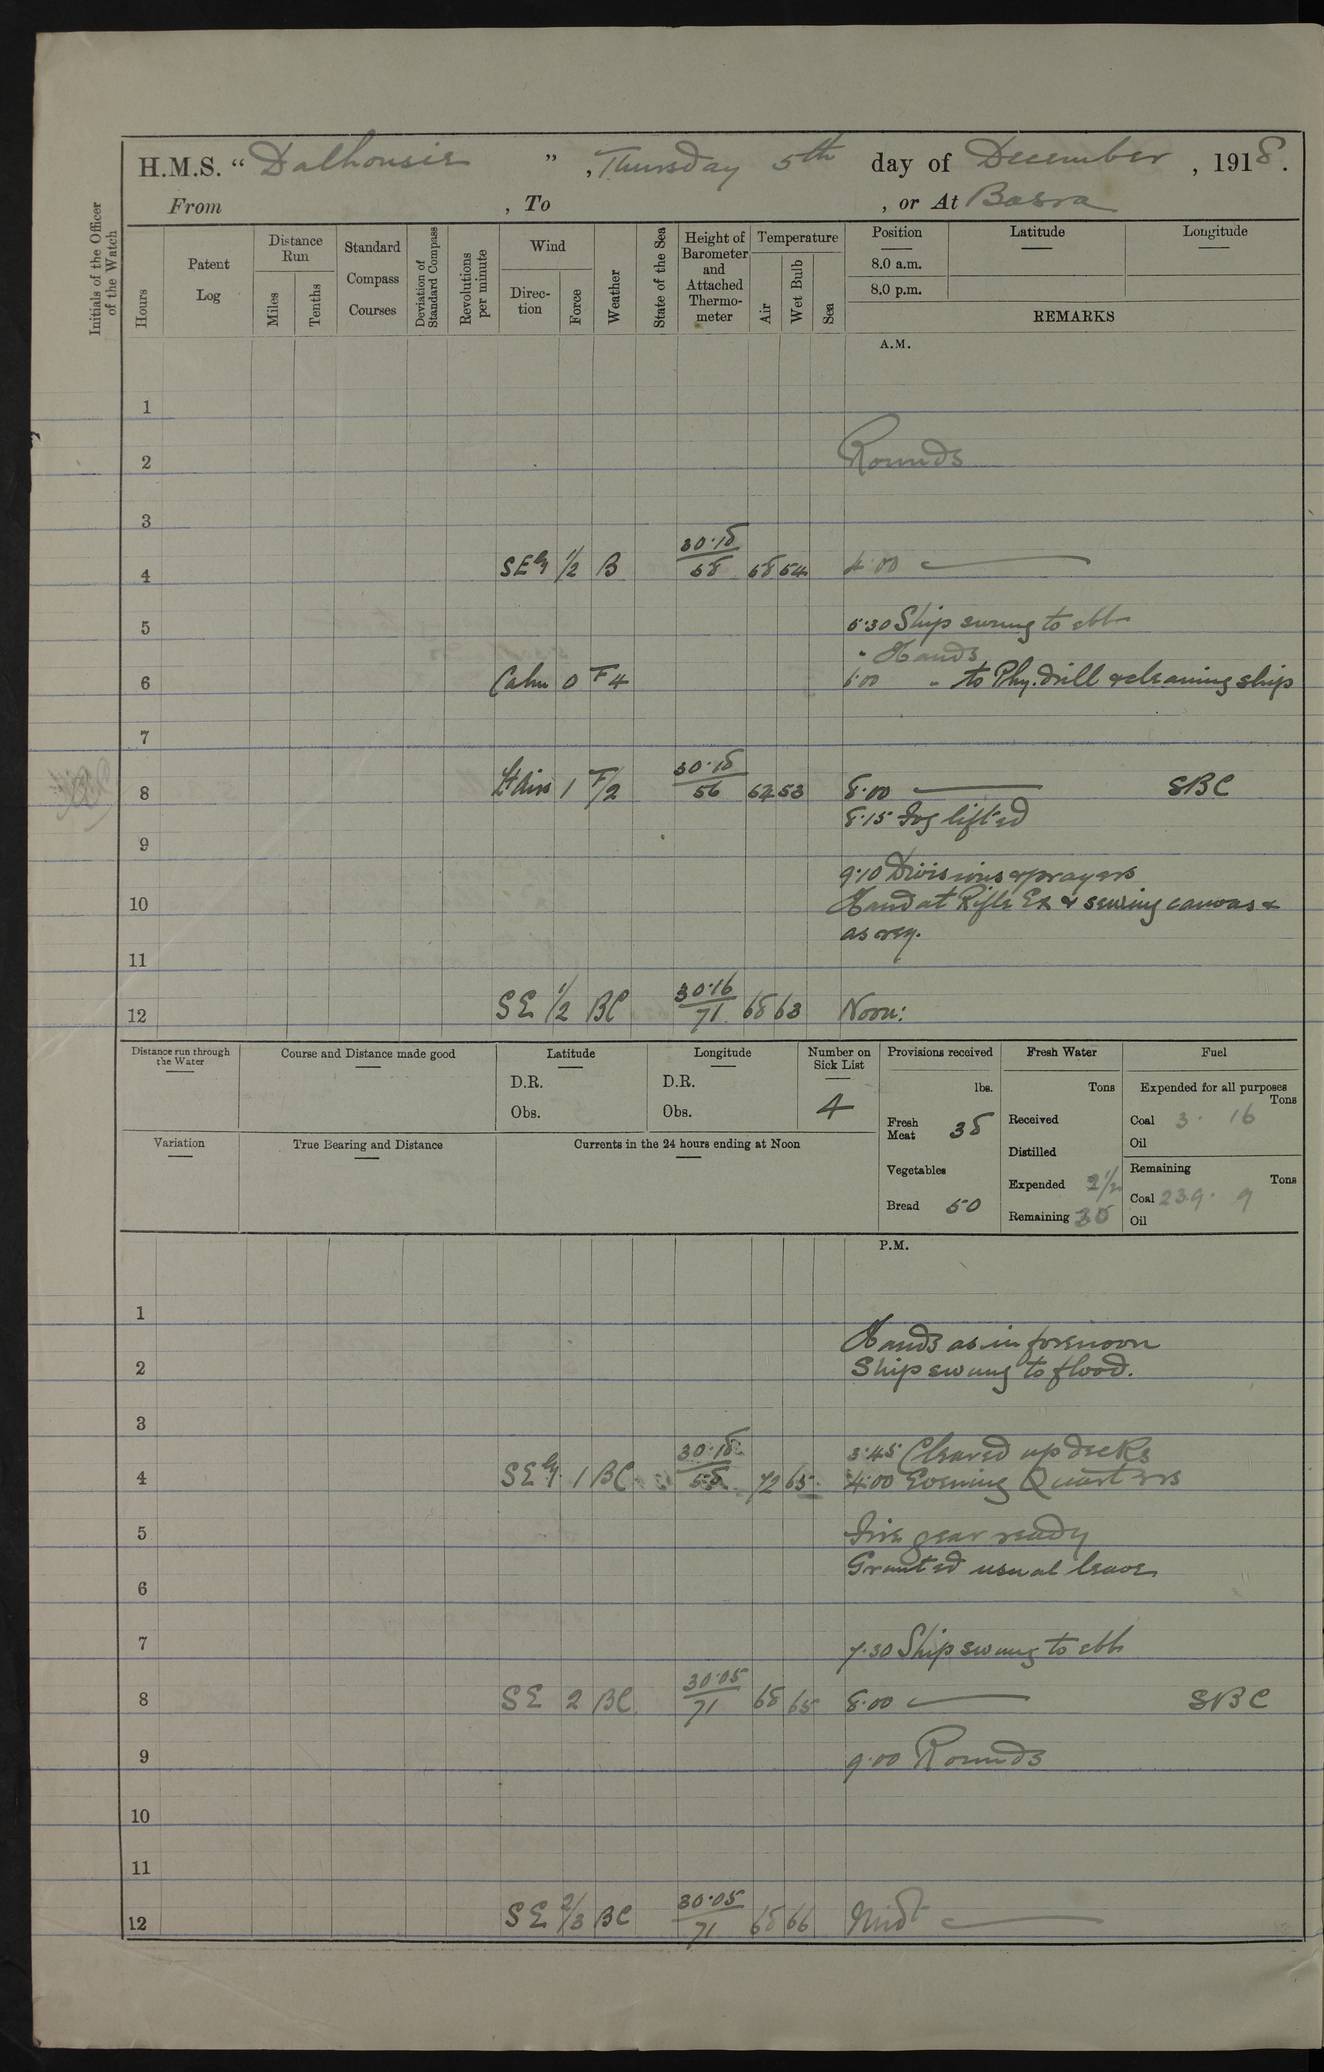 H.M.S. “ Dalhousie ” , Thursday 5th day of December , 1918.
From , To , or At Basra
Initials of the Officer of the Watch
Hours
Patent Log
Distance Run
Miles
Tenths
Standard Compass Courses
Deviation of Standard Compass
Revolutions per minute
Wind
Direction
Force
Weather
State of the Sea
Height of Barometer and Attached Thermometer
Temperature
Air
Wet Bulb
Sea
Position
8.0 a.m.
8.0 p.m.
Latitude
Longitude
REMARKS
A.M.
1
2 Rounds
3
4 SEly 1/2 B 30.18 58 58 54 4.00
5 5.30 Ship swung to ebb
" Hands
6 Calm 0 F4 6.00 " to Phy. drill & cleaning ship
7
8 Lt Airs 1 F/2 30.18 56 52 53 8.00 SBC
8.15 Fog lifted
9
9.10 Divisions & prayers
10 Hand at Rifle Ex & sewing canvas &
as req.
11
12 SE 1/2 BC 30.16 71 68 63 Noon:
Distance run through the Water
Course and Distance made good
Latitude
D.R.
Obs.
Longitude
D.R.
Obs.
Number on Sick List
4
Provisions received
lbs.
Fresh Meat 38
Vegetables
Bread 50
Fresh Water
Tons
Received
Distilled
Expended 2 1/2
Remaining
Fuel
Expended for all purposes
Tons
Coal 3. 16
Oil
Remaining
Tons
Coal 239. 9
Oil
Variation
True Bearing and Distance
Currents in the 24 hours ending at Noon
P.M.
1
Hands as in forenoon
2 Ship swung to flood.
3
3.45 Cleared up decks
4 SEly 1 BC 30.18 72 65 4.00 Evening Quarters
5 Fire gear ready
Granted usual leave
6
7 7.30 Ship swung to ebb
8 SE 2 BC 30.05 71 68 65 8.00 SBC
9 9.00 Rounds
10
11
12 SE 2/3 BC 30.05 71 68 66 Midt